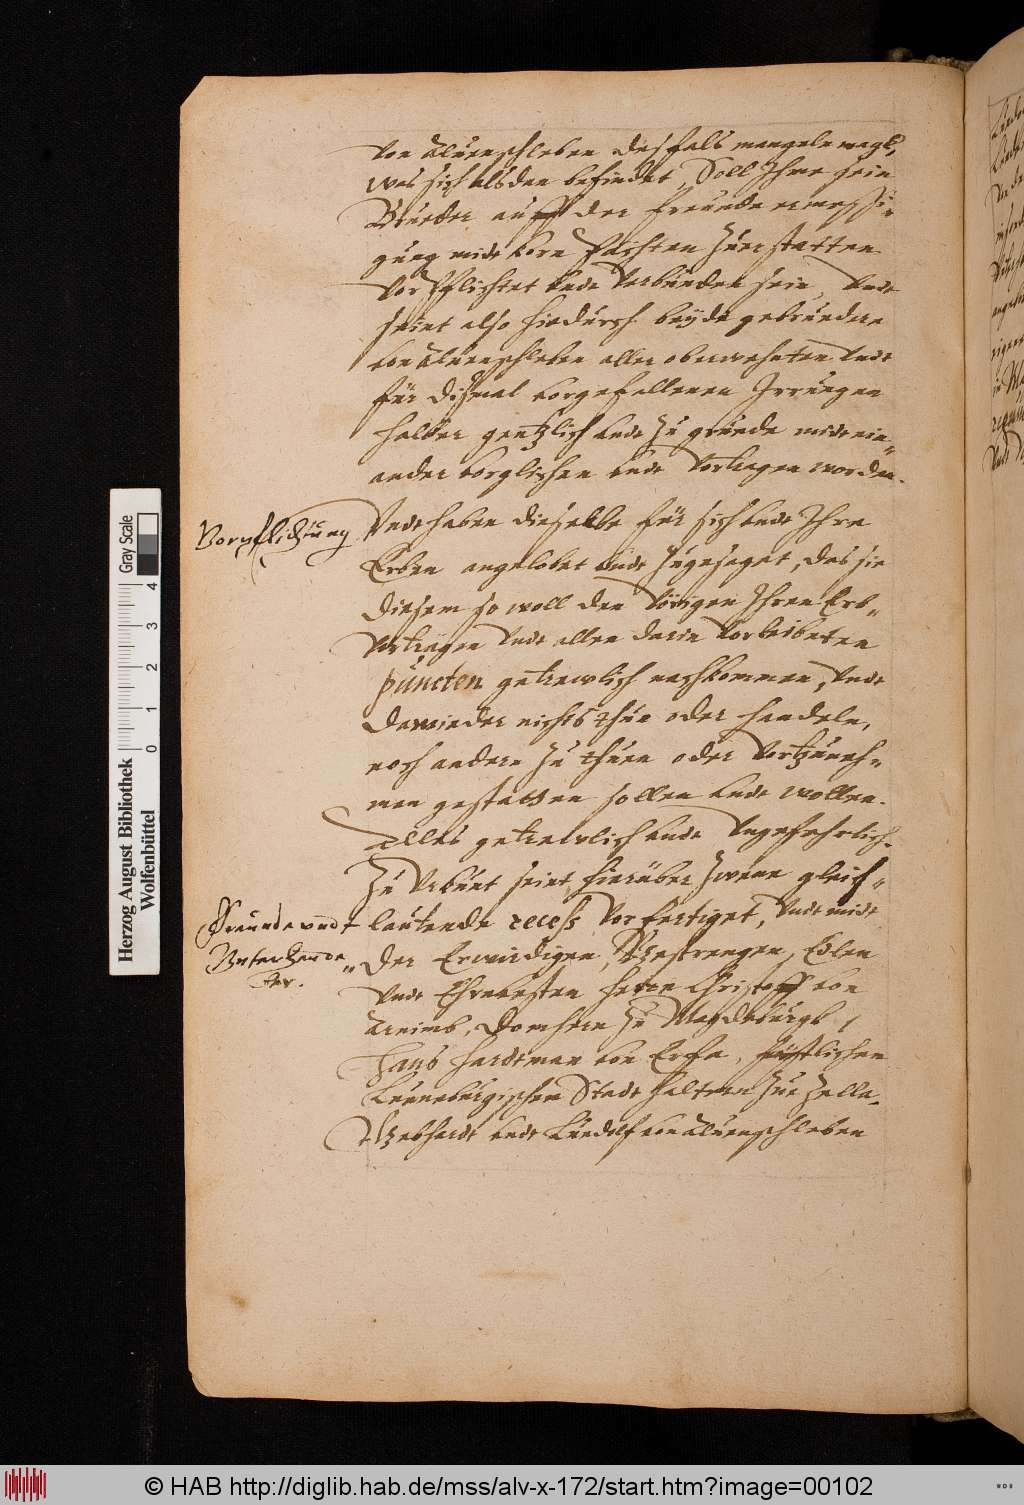 von Aluenschleben desfals mangeln magk,
was sich alsdan befindet, Soll Ihme sein
Brueder auff der freunde ermessi-
gung mide vorpflichtet vnde verbunden sein, Vnde
seint also hiedurch beyde gebruedere
von Aluenschleben aller oberwehnten vnde
für dismal vorgefallenen Irrungen
halber gentzlich vnde zu grunde mide ein-
ander vorglichen vnde vortragen worden.
Vorpflichtung
Vnde haben dieselbe für sich vnde Ihre
Erben angelobet vnde zugesaget, das sie
diesem so woll den vorigen Ihren Erb-
vortragen vnde allen darin vorleibeten
puncten getrewlich nachkommen, vnde
dawieder nichts thun oder handeln,
noch andern zu thuen oder vortzuneh-
men gestatten sollen vnde wollen.
Alles getrewlich vnde vngefehrlich.
Zu vrkunt seint hierüber zwene gleich-
Freunde vnndt
Vnterhende
ler.
lautende recess vorfertiget, vnde mide
der Erwirdigen, Gestrengen, Edlen
vnde Ehrnvesten Herrn Christoff von
Arnimb, Domhern zu Magdeburgk,
Hans Hardtman von Erfa, fürstlichen
Luneburgischen Stadthaltern zur Zelle,
Gebhardt vnde Ludolf von Aluenschleben
Herzog August Bibliothek
Wolfenbüttel
Gray Scale
0 1 2 3 4
© HAB http://diglib.hab.de/mss/alv-x-172/start.htm?image=00102